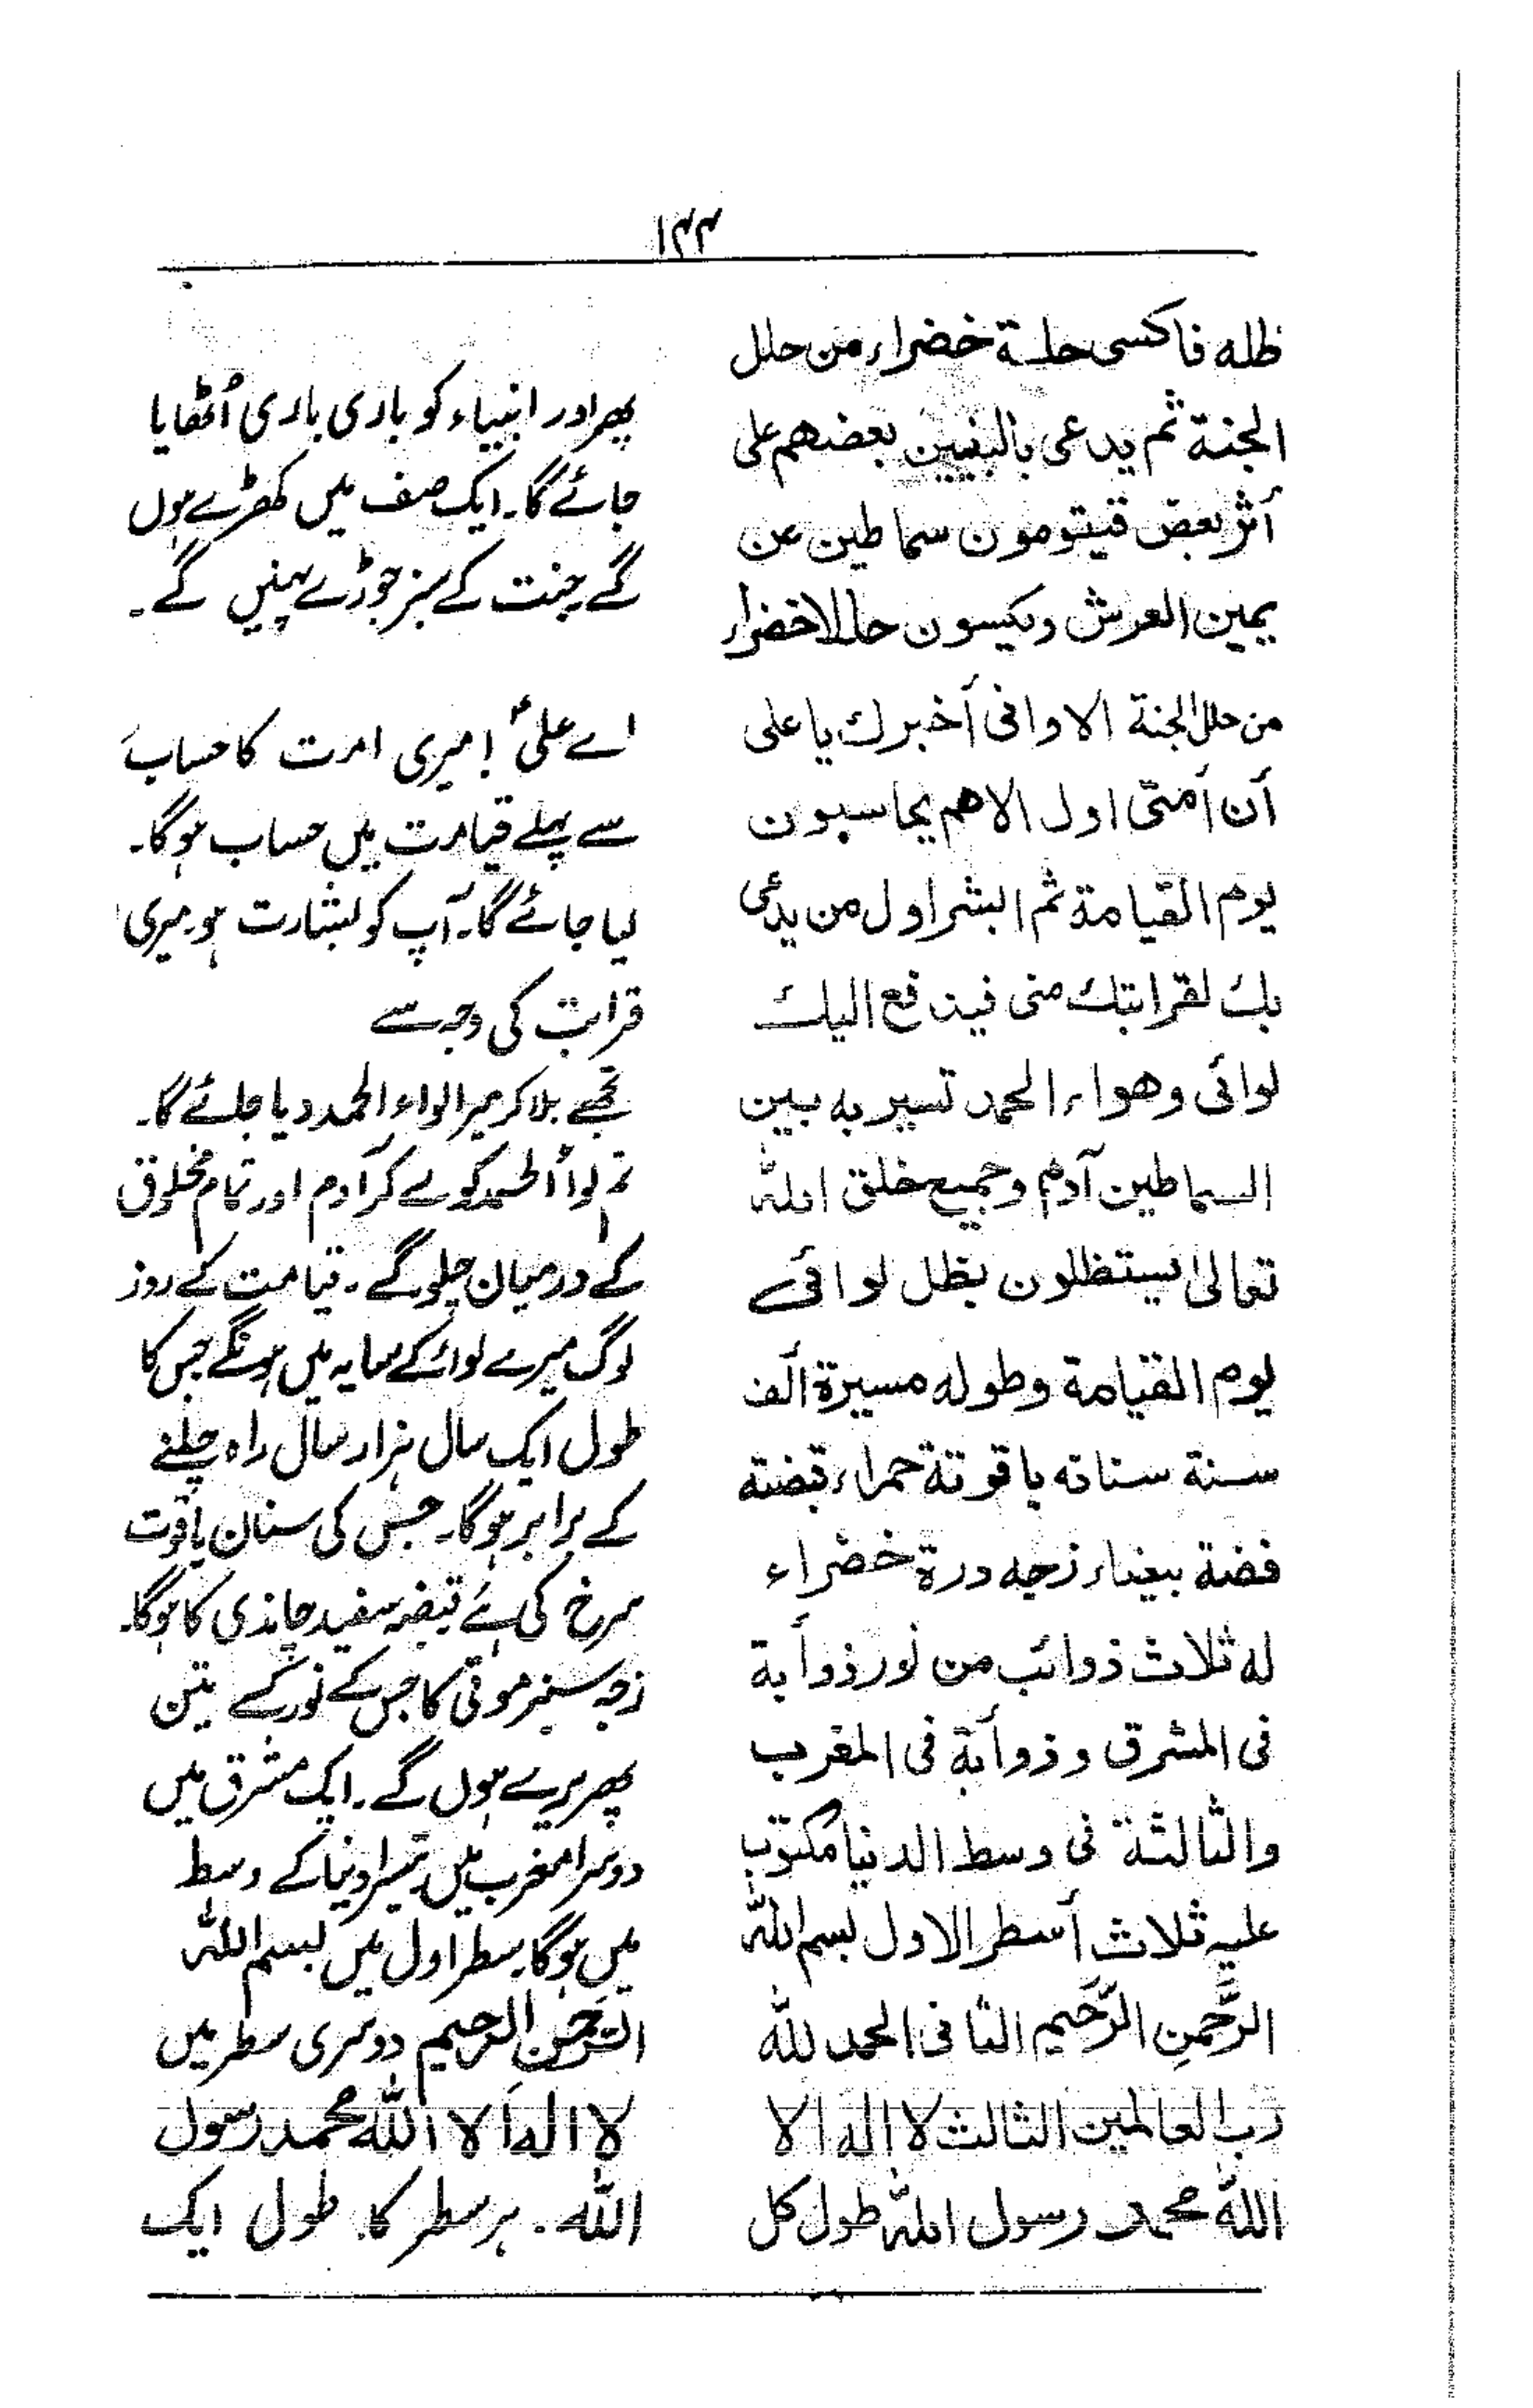 ۱۴۴
ظله فاكسى حلة خضراء من حلل
الجنة ثم يدعى بالنبيين بعضهم على
أثر بعض فيتومون سماطين عن
يمين العرش ويكسون حللا خضراء
من حلل الجنة الا وانى أخبرك يا على
أن أمتى اول الامم يحاسبون
يوم القيامة ثم ابشر اول من يدعى
بك لقرابتك منى فيدفع اليك
لوائى وهواء الحمد تسير به بين
السماطين آدم وجميع خلق الله
تعالى يستظلون بظل لوائى
يوم القيامة وطوله مسيرة ألف
سنة سنانه ياقوتة حمراء قبضته
فضة بيضاء زجه درة خضراء
له ثلاث ذوائب من نور ذوأبة
فى المشرق و ذوأبة فى المغرب
والثالثة فى وسط الدنيا مكتوب
عليه ثلاث أسطر الاول بسم الله
الرَّحمنِ الرَّحيم الثانى الحمد لله
رب العالمين الثالث لا اله الا
الله محمد رسول الله طول كل
پھر اور انبیاء کو باری باری اُٹھایا
جائے گا۔ ایک صف میں کھڑے ہوں
گے جنت کے سبز جوڑے پہنیں گے۔
اے علیؑ! میری امت کا حساب
سے پہلے قیامت میں حساب ہو گا۔
لیا جائے گا۔ آپ کو بشارت ہو میری
قرابت کی وجہ سے
تجھے بلا کر میرا لواء الحمد دیا جائے گا۔
تم لوأ الحمد کو لے کر آدم اور تمام مخلوق
کے درمیان چلو گے۔ قیامت کے روز
لوگ میرے لوائے کے سایہ میں ہونگے جس کا
طول ایک سال ہزار سال راہ چلنے
کے برابر ہوگا۔ جس کی سنان یاقوت
سرخ کی ہے قبضہ سفید چاندی کا ہوگا۔
زجہ سبز موتی کا جس کے نور کے تین
پھریرے ہوں گے۔ ایک مشرق میں
دوسرا مغرب میں تیسرا دنیا کے وسط
میں ہوگا۔ سطر اول میں بسم اللہ
الرحمن الرحیم دوسری سطر میں
لا الہ الا اللہ محمد رسول
اللہ۔ ہر سطر کا طول ایک